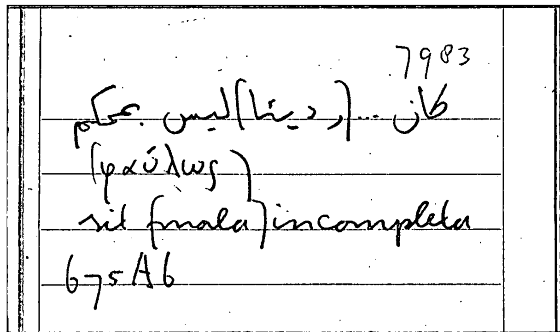 7983
كان ... (رديئا) ليس بمحكم
(φαύλως)
sit (mala) incompleta
675A6